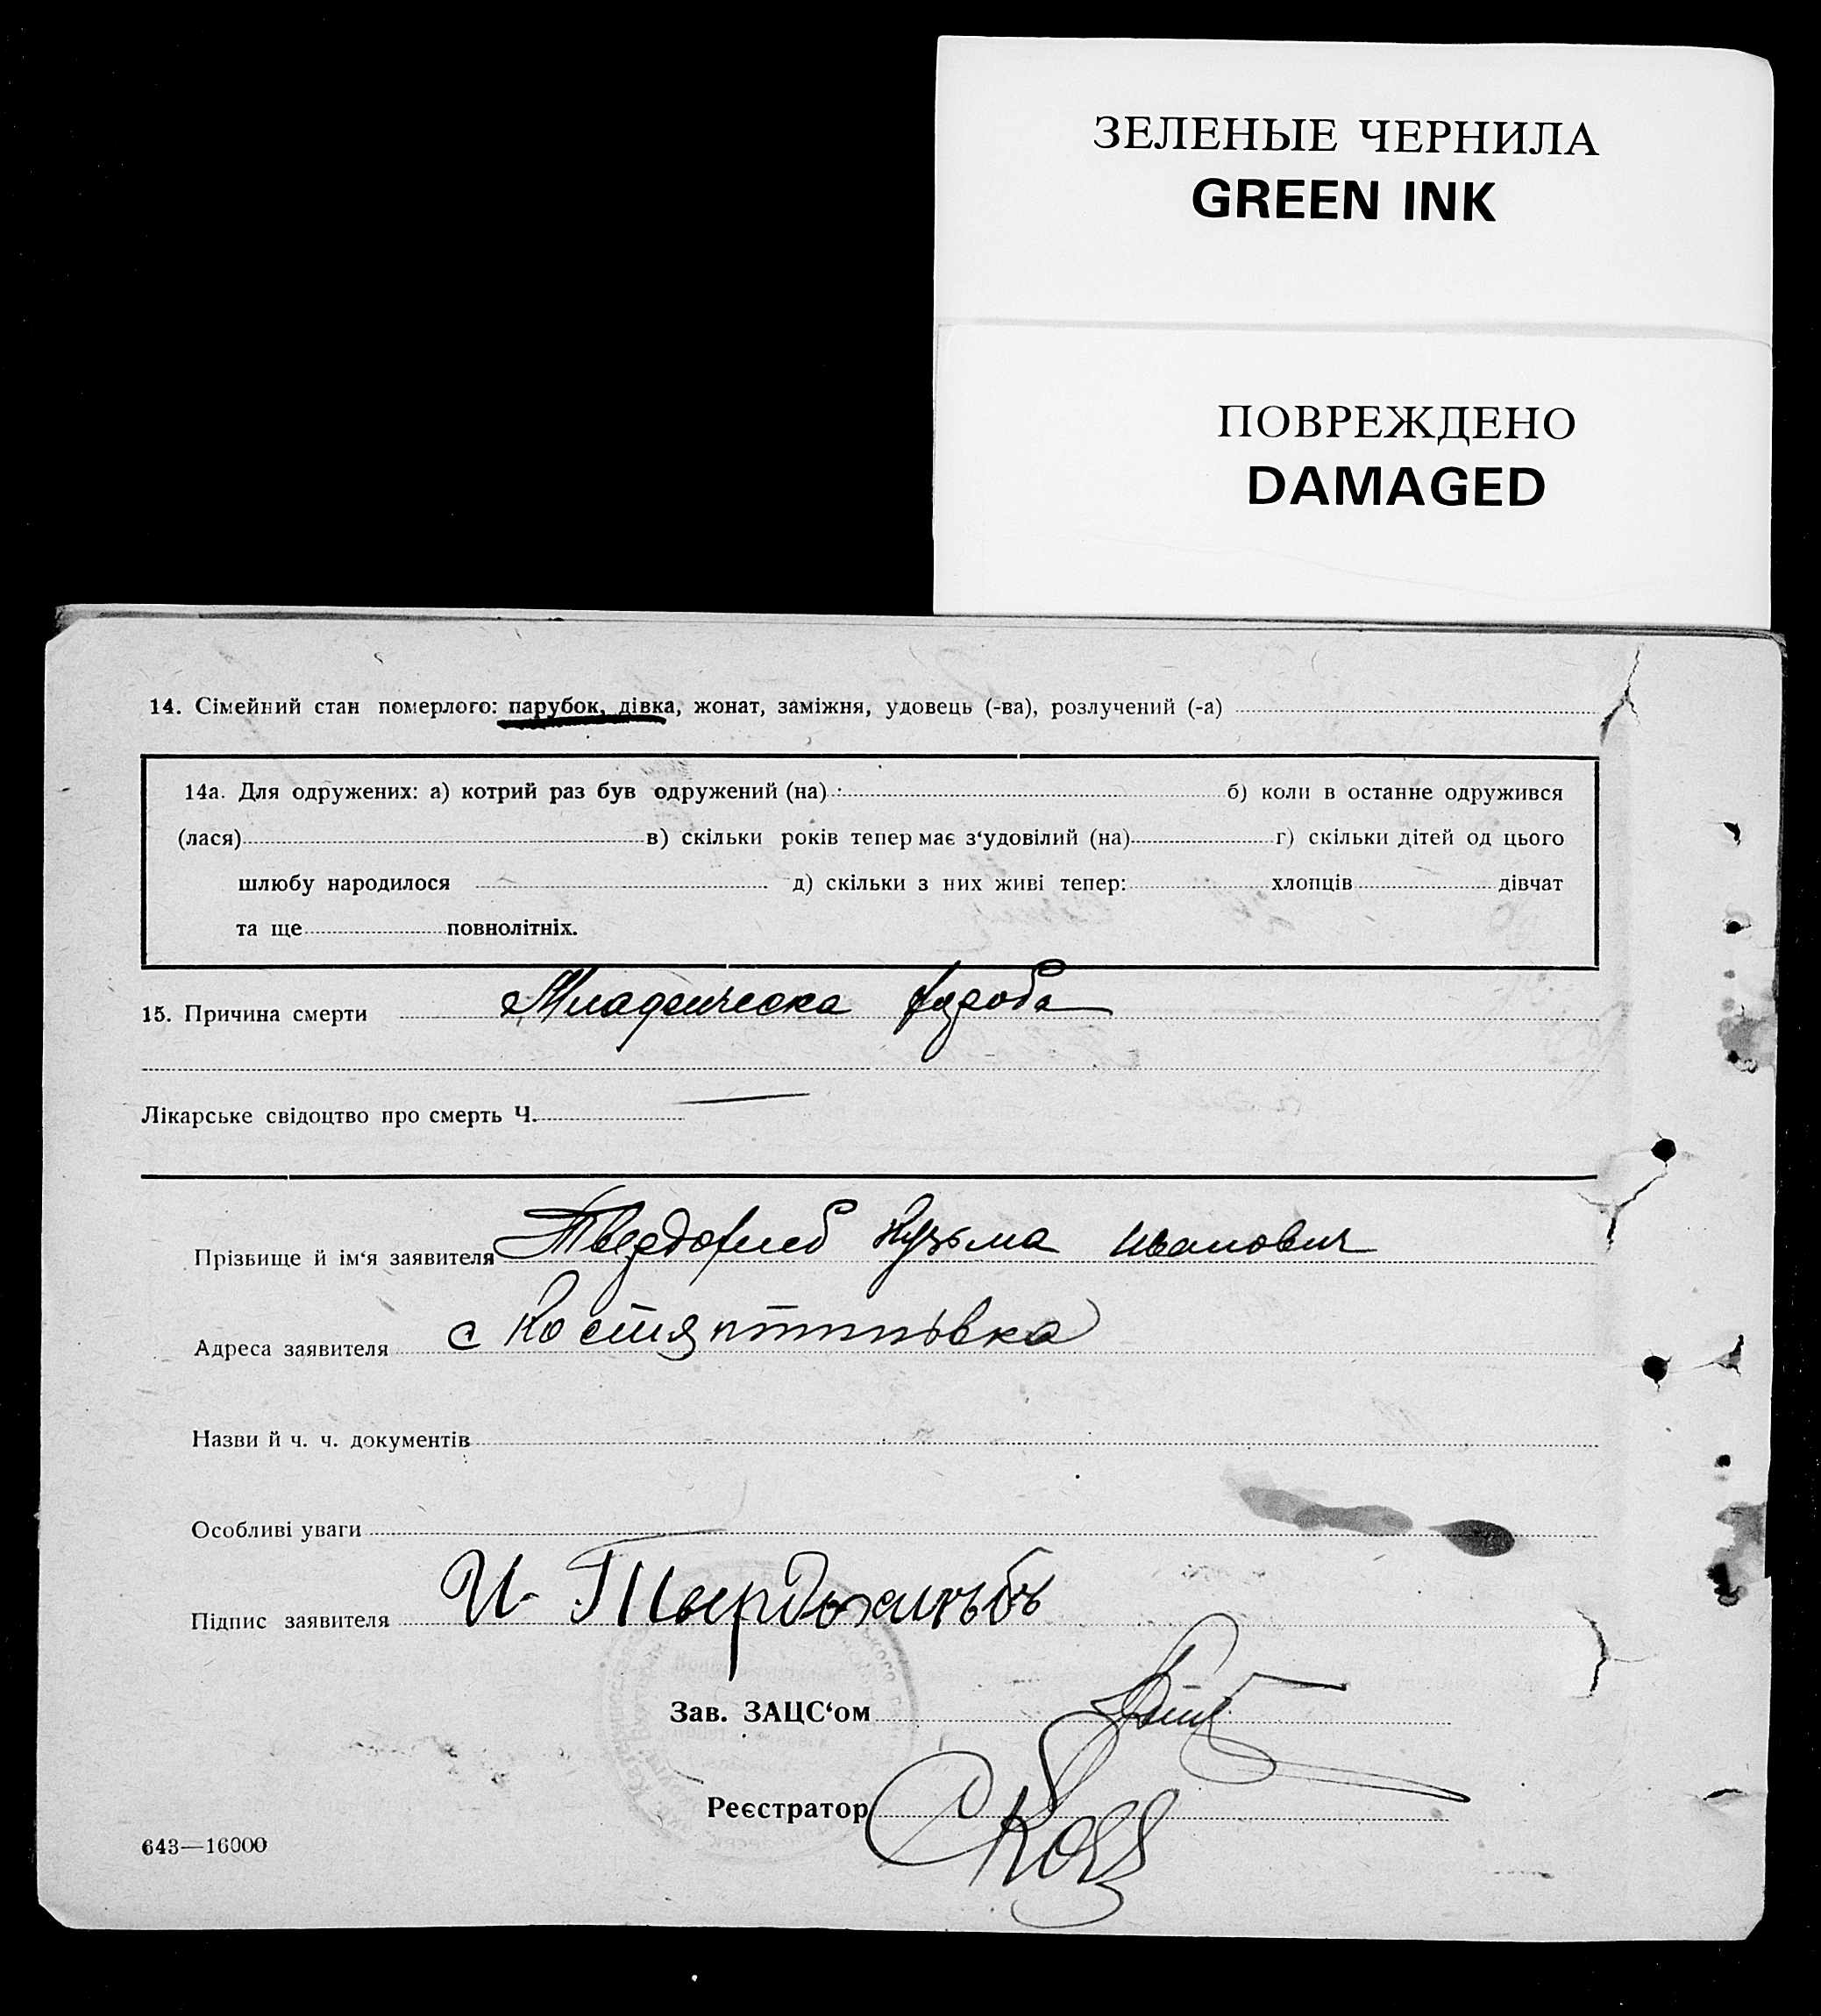 ЗЕЛЕНЫЕ ЧЕРНИЛА
GREEN INK
ПОВРЕЖДЕНО
DAMAGED
14. Сімейний стан померлого: парубок, дівка, жонат, заміжня, удовець (-ва), розлучений (-а)
14а. Для одружених: а) котрий раз був одружений (на) б) коли в останне одружився
(лася) в) скільки років тепер має з‘удовілий (на) г) скільки дітей од цього
шлюбу народилося д) скільки з них живі тепер: хлопців дівчат
та ще повнолітніх.
15. Причина смерти Младенческа
Лікарське свідоцтво про смерть Ч.
Прізбище й ім‘я заявителя Твердохлеб Кузьма Иванович
Адреса заявителя с Костянтинівка
Назви й ч. ч. документів
Особливі уваги
Підпис заявителя
Зав. ЗАЦС‘ом
Реєстратор
643—16000